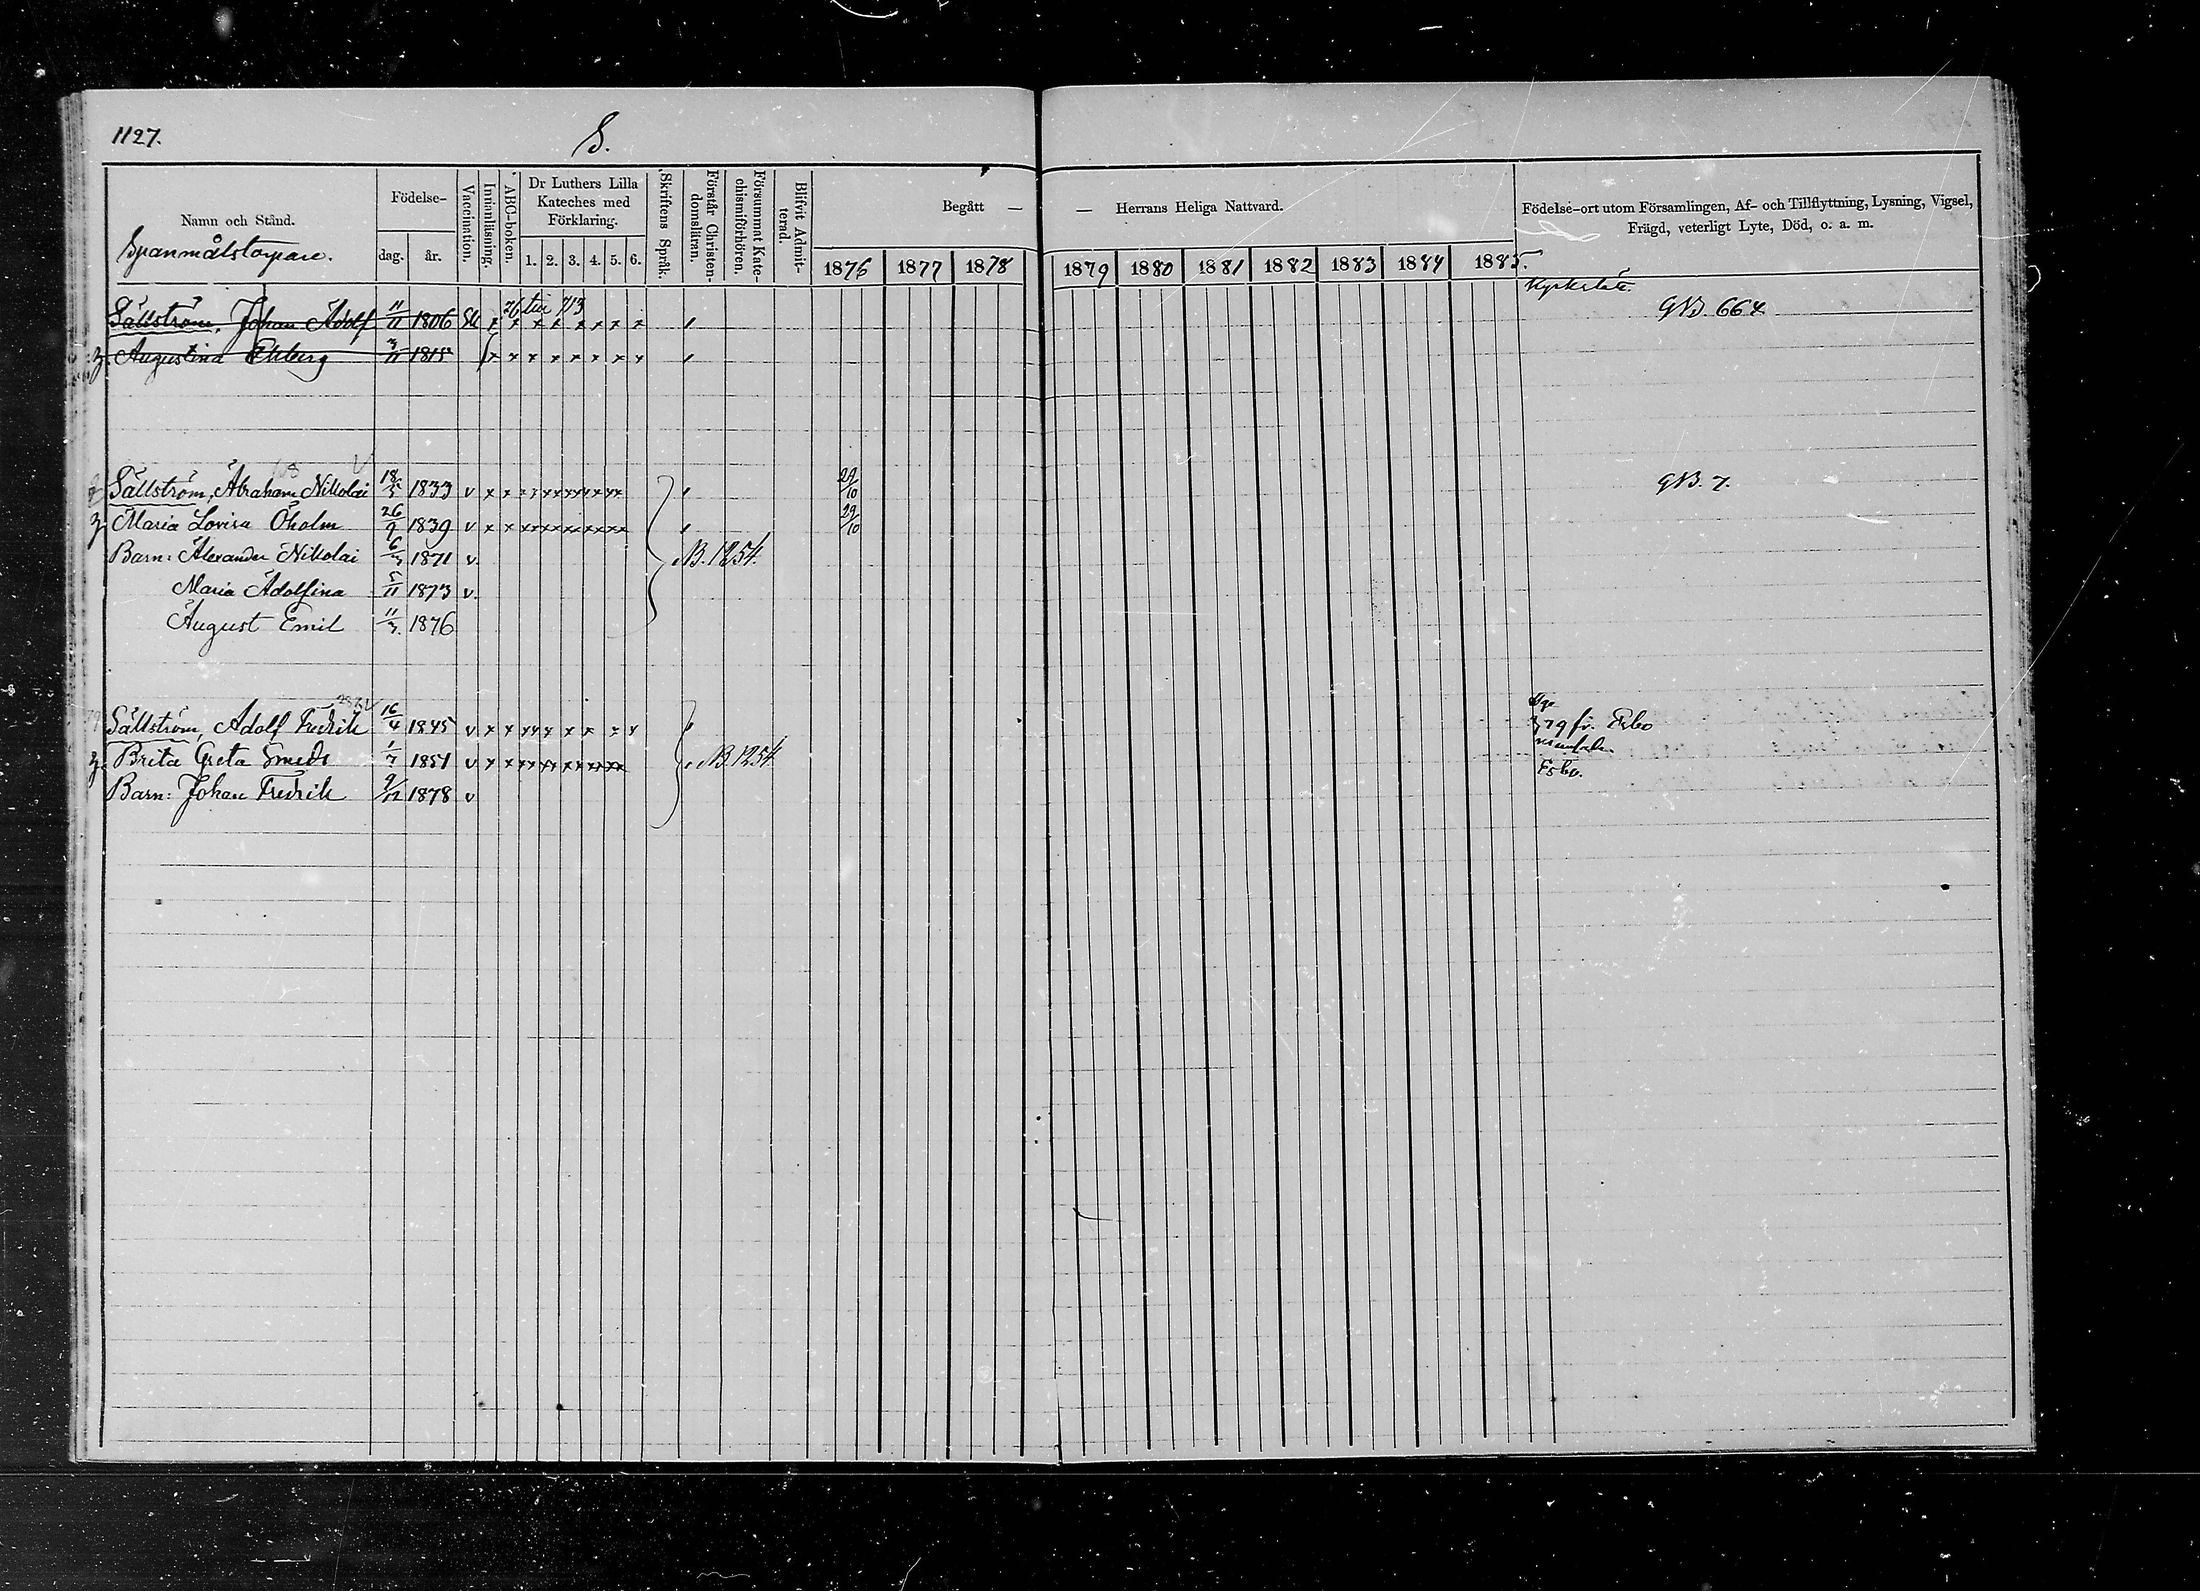 1127.
S.
Namn och Stånd.
Födelse-
dag.
år.
Vaccination.
Innanläsning.
ABC-boken.
Dr Luthers Lilla
Kateches med
Förklaring.
1. 2. 3. 4. 5. 6.
Skriftens Språk.
Förstår Christen-
domsläran.
Försummat Kate-
chismiförhören.
Blifvit Admit-
terad.
Begått —
— Herrans Heliga Nattvard.
Födelse-ort utom Församlingen, Af- och Tillflyttning, Lysning, Vigsel,
Frägd, veterligt Lyte, Död, o. a. m.
1876 1877 1878 1879 1880 1881 1882 1883 1884 1885.
Spanmålstorpare.
Sällström, Johan Adolf 11/11 1806 x x x x x x x x GB. 664
Augustina Ekberg 3/11 1815 x x x x x x x x
Sällström, Abraham Nikolai 18/5 1833 v 29/10 GB. 7.
Maria Lovisa Öholm 26/9 1839 v 29/10
Barn: Alexander Nikolai 6/3 1871 v. NB. 1254.
Maria Adolfina 5/11 1873 v.
August Emil 11/3 1876
Sällström, Adolf Fredrik 16/4 1845 v 79 fr. Esbo
Brita Greta Smeds 1/7 1851 v NB. 1254 Esbo.
Barn: Johan Fredrik 9/12 1878 v